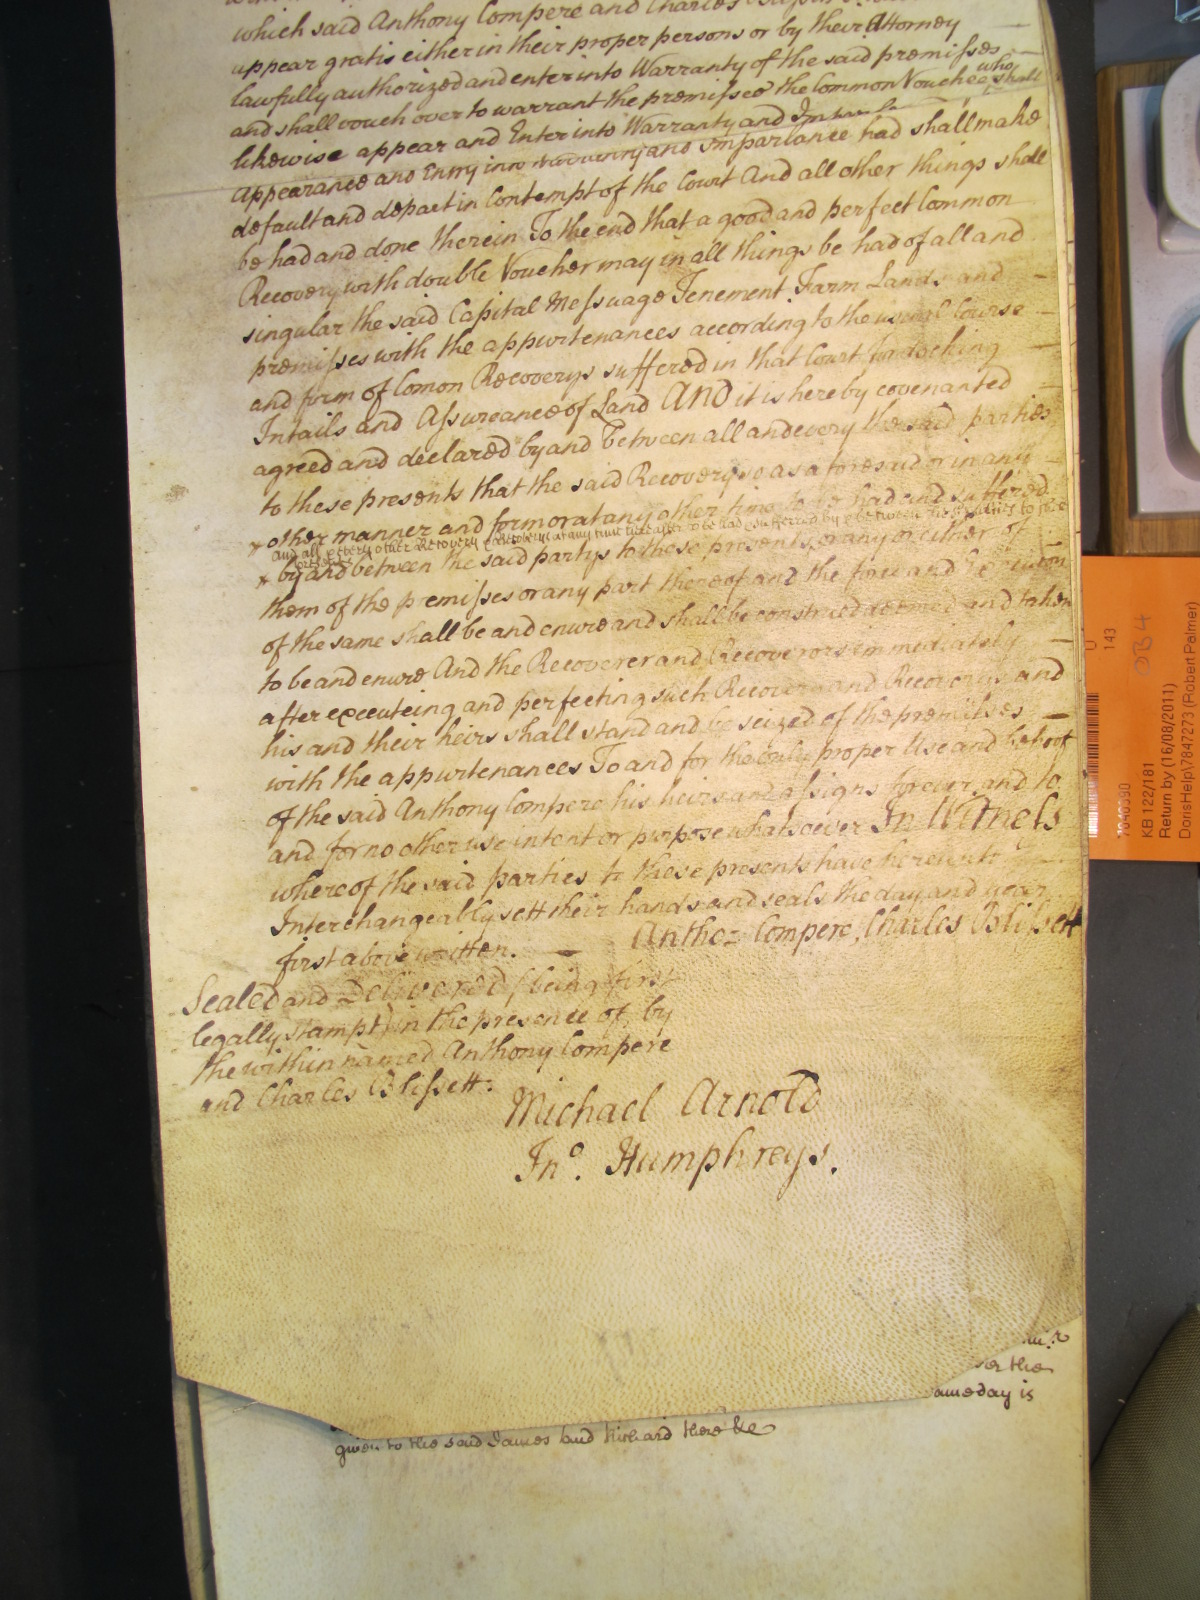 which said Anthony Compere and Charles
appear gratis either in their proper persons or by their Attorney
lawfully authorized and enter into Warranty of the said premisses
and shall vouch over to warrant the premisses the Common Vouchee who shall
likewise appear and Enter into Warranty and
Appearance and Entry into Warranty and Imparlance had shall make
default and depart in Contempt of the Court And all other things shall
be had and done therein To the end that a good and perfect Common
Recovery with double Voucher may in all things be had of all and
singular the said Capital Messuage Tenement Farm Lands and
premisses with the appurtenances according to the usual Course
and form of Comon Recoverys suffered in that Court for docking
Intails and Assureance of Land AND it is hereby covenanted
agreed and declared by and between all and every the said parties
to these presents that the said Recovery so as aforesaid or in any
other manner and form or at any other time to be had and suffered
and all & every other Recovery & Recoverys at any time hereafter to be had & suffered by & between these parties to these
by and between the said partys to these presents or any or either of
them of the premisses or any part thereof and the force and Execution
of the same shall be and enure and shall be construed deemed and taken
to be and enure And the Recoverer and Recoverors immediately
after executeing and perfecting such Recovery and Recoverys and
his and their heirs shall stand and be seized of the premisses
with the appurtenances To and for the only proper Use and behoof
of the said Anthony Compere his heirs and assigns forever and to
and for no other use intent or purpose whatsoever In Witness
whereof the said parties to these presents have hereunto
Interchangeably sett their hands and seals the day and year
first above written. Antho: Compere, Charles Blissett
Sealed and Delivered (being first
legally stampt) in the presence of by
the within named Anthony Compere
and Charles Blissett.
Michael Arnold
Jno. Humphreys.
the
same day is
given to the said James and Richard there &c
143
OB4
7040390
KB 122/181
Return by (16/08/2011)
DorisHelp\7847273 (Robert Palmer)